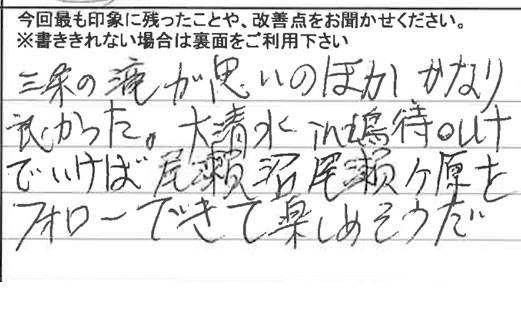 今回最も印象に残ったことや、改善点をお聞かせください。
※書ききれない場合は裏面をご利用下さい
三条の滝が思いのほか かなり
良かった。大清水in鳩待out
でいけば 尾瀬沼尾瀬ヶ原を
フォローできて楽しめそうだ